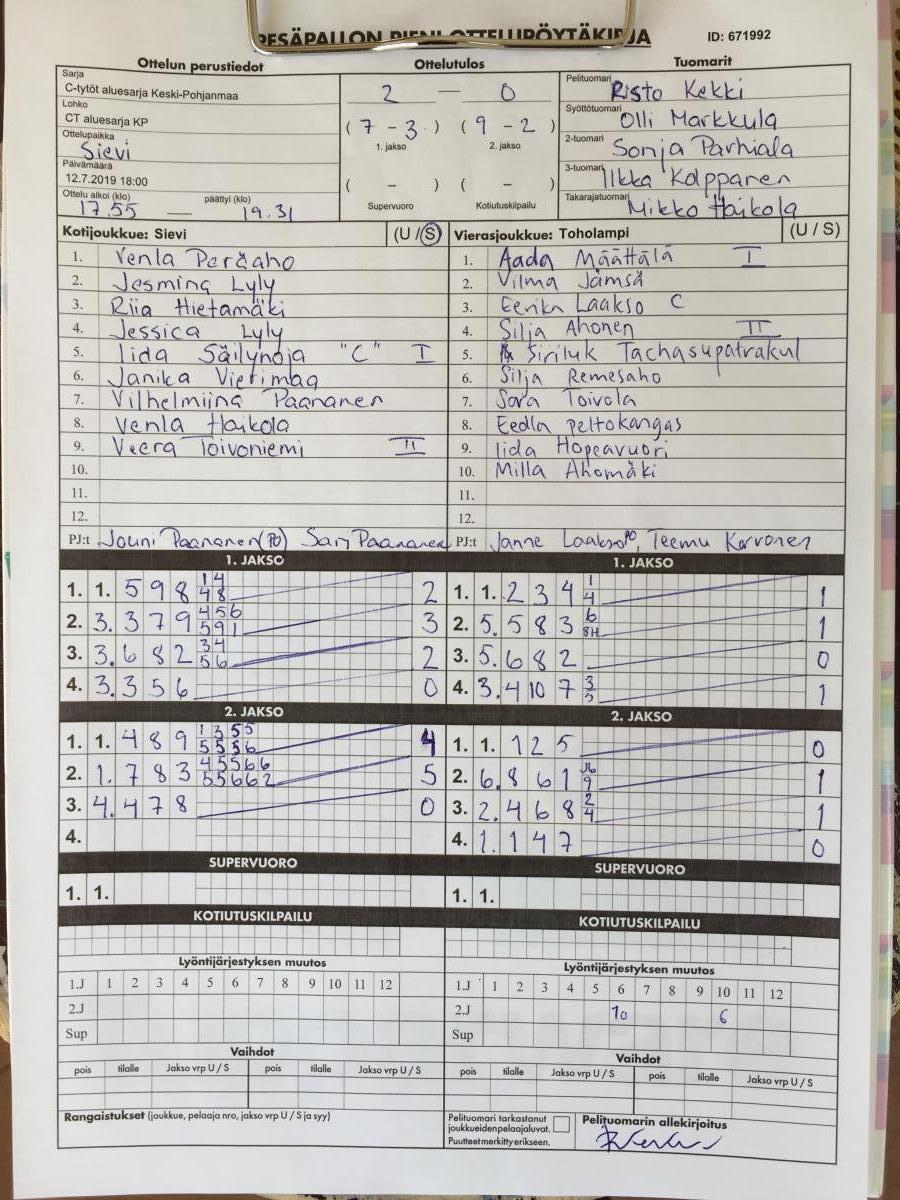 PESÄPALLON PIENI OTTELUPÖYTÄKIRJA
ID: 671992
Ottelun perustiedot
Sarja
C-tytöt aluesarja Keski-Pohjanmaa
Lohko
CT aluesarja KP
Ottelupaikka
Sievi
Päivämäärä
12.7.2019 18:00
Ottelu alkoi (klo) päättyi (klo)
17.55 — 19.31
Ottelutulos
2 — 0
(7 - 3) (9 - 2)
1. jakso 2. jakso
( - ) ( - )
Supervuoro Kotiutuskilpailu
Tuomarit
Pelituomari Risto Kekki
Syöttötuomari Olli Markkula
2-tuomari Sonja Parhiala
3-tuomari Ilkka Kolppanen
Takarajatuomari Mikko Haikola
Kotijoukkue: Sievi (U / S)
1. Venla Peräaho
2. Jesmina Lyly
3. Riia Hietamäki
4. Jessica Lyly
5. Iida Säilynoja "C" I
6. Janika Vierimaa
7. Vilhelmiina Paananen
8. Venla Haikola
9. Veera Toivoniemi II
10.
11.
12.
PJ:t Jouni Paananen (PO) Sari Paananen
Vierasjoukkue: Toholampi (U / S)
1. Aada Määttälä I
2. Vilma Jämsä
3. Eerika Laakso C
4. Silja Ahonen II
5. Siriluk Tachasupatrakul
6. Silja Remesaho
7. Sara Toivola
8. Eedla Peltokangas
9. Iida Hopeavuori
10. Milla Ahomäki
11.
12.
PJ:t Janne Laakso PO, Teemu Korvonen
1. JAKSO
1. 1. 5 9 8 14 48 2
2. 3. 3 7 9 456 591 3
3. 3. 6 8 2 34 56 2
4. 3. 3 5 6 0
2. JAKSO
1. 1. 4 8 9 1355 5556 4
2. 1. 7 8 3 45566 55662 5
3. 4. 4 7 8 0
4.
SUPERVUORO
1. 1.
KOTIUTUSKILPAILU
Lyöntijärjestyksen muutos
1.J 1 2 3 4 5 6 7 8 9 10 11 12
2.J
Sup
Vaihdot
pois tilalle Jakso vrp U / S pois tilalle Jakso vrp U / S
Rangaistukset (joukkue, pelaaja nro, jakso vrp U / S ja syy)
1. JAKSO
1. 1. 2 3 4 1 4 1
2. 5. 5 8 3 6 8H 1
3. 5. 6 8 2 0
4. 3. 4 10 7 1
2. JAKSO
1. 1. 1 2 5 0
2. 6. 8 6 1 9 1
3. 2. 4 6 8 2 4 1
4. 1. 1 4 7 0
SUPERVUORO
1. 1.
KOTIUTUSKILPAILU
Lyöntijärjestyksen muutos
1.J 1 2 3 4 5 6 7 8 9 10 11 12
2.J 10 6
Sup
Vaihdot
pois tilalle Jakso vrp U / S pois tilalle Jakso vrp U / S
Pelituomari tarkastanut
joukkueiden pelaajaluvat.
Puutteet merkitty erikseen.
Pelituomarin allekirjoitus